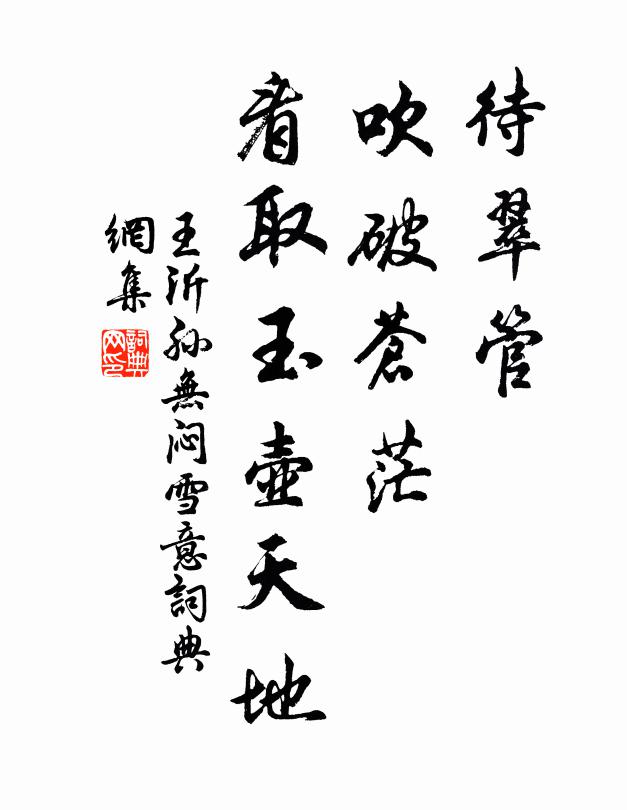 待翠管
吹破蒼茫
看取玉壺天地
王沂孙無闷雪意詞典
網集
詞典网印